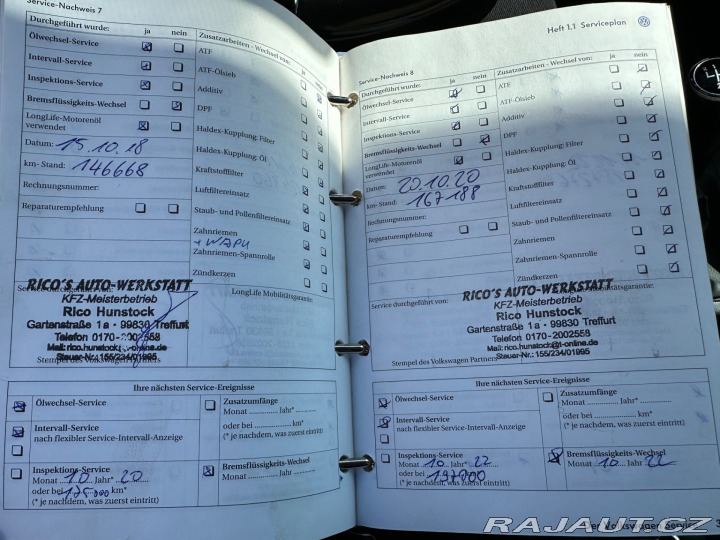 Service-Nachweis 7
Durchgeführt wurde: ja nein
Ölwechsel-Service
Intervall-Service
Inspektions-Service
Bremsflüssigkeits-Wechsel
LongLife-Motorenöl
verwendet
Datum: 15.10.18
km- Stand: 146668
Rechnungsnummer:
Reparaturempfehlung
Zusatzarbeiten - Wechsel von: ja nein
ATF
ATF-Ölsieb
Additiv
DPF
Haldex-Kupplung: Filter
Haldex-Kupplung: Öl
Kraftstofffilter
Luftfiltereinsatz
Staub- und Pollenfiltereinsatz
Zahnriemen
+ WAPU
Zahnriemen-Spannrolle
Zündkerzen
Service durchgeführt von:
LongLife Mobilitätsgarantie:
RICO'S AUTO-WERKSTATT
KFZ-Meisterbetrieb
Rico Hunstock
Gartenstraße 1a · 99830 Treffurt
Telefon 0170-2002558
Mail: rico.hunstock@t-online.de
Steuer-Nr.: 155/234/01995
Stempel des Volkswagen Partners
Ihre nächsten Service-Ereignisse
Ölwechsel-Service
Intervall-Service
nach flexibler Service-Intervall-Anzeige
Inspektions-Service
Monat 10 Jahr* 20
oder bei km*
(* je nachdem, was zuerst eintritt)
Zusatzumfänge
Monat Jahr*
oder bei km*
(* je nachdem, was zuerst eintritt)
Bremsflüssigkeits-Wechsel
Monat Jahr
Heft 1.1 Serviceplan
Service-Nachweis 8
Durchgeführt wurde: ja nein
Ölwechsel-Service
Intervall-Service
Inspektions-Service
Bremsflüssigkeits-Wechsel
LongLife-Motorenöl
verwendet
Datum: 20.10.20
km- Stand: 167188
Rechnungsnummer:
Reparaturempfehlung
Zusatzarbeiten - Wechsel von: ja nein
ATF
ATF-Ölsieb
Additiv
DPF
Haldex-Kupplung: Filter
Haldex-Kupplung: Öl
Kraftstofffilter
Luftfiltereinsatz
Staub- und Pollenfiltereinsatz
Zahnriemen
Zahnriemen-Spannrolle
Zündkerzen
Service durchgeführt von:
Mobilitätsgarantie:
RICO'S AUTO-WERKSTATT
KFZ-Meisterbetrieb
Rico Hunstock
Gartenstraße 1a · 99830 Treffurt
Telefon 0170-2002558
Mail: rico.hunstock@t-online.de
Steuer-Nr.: 155/234/01995
Stempel des Volkswagen Partners
Ihre nächsten Service-Ereignisse
Ölwechsel-Service
Intervall-Service
nach flexibler Service-Intervall-Anzeige
Inspektions-Service
Monat 10 Jahr* 22
oder bei 197000 km*
(* je nachdem, was zuerst eintritt)
Zusatzumfänge
Monat Jahr*
oder bei km*
(* je nachdem, was zuerst eintritt)
Bremsflüssigkeits-Wechsel
Monat 10 Jahr 22
Der Volkswagen Service
RAJAUT.CZ